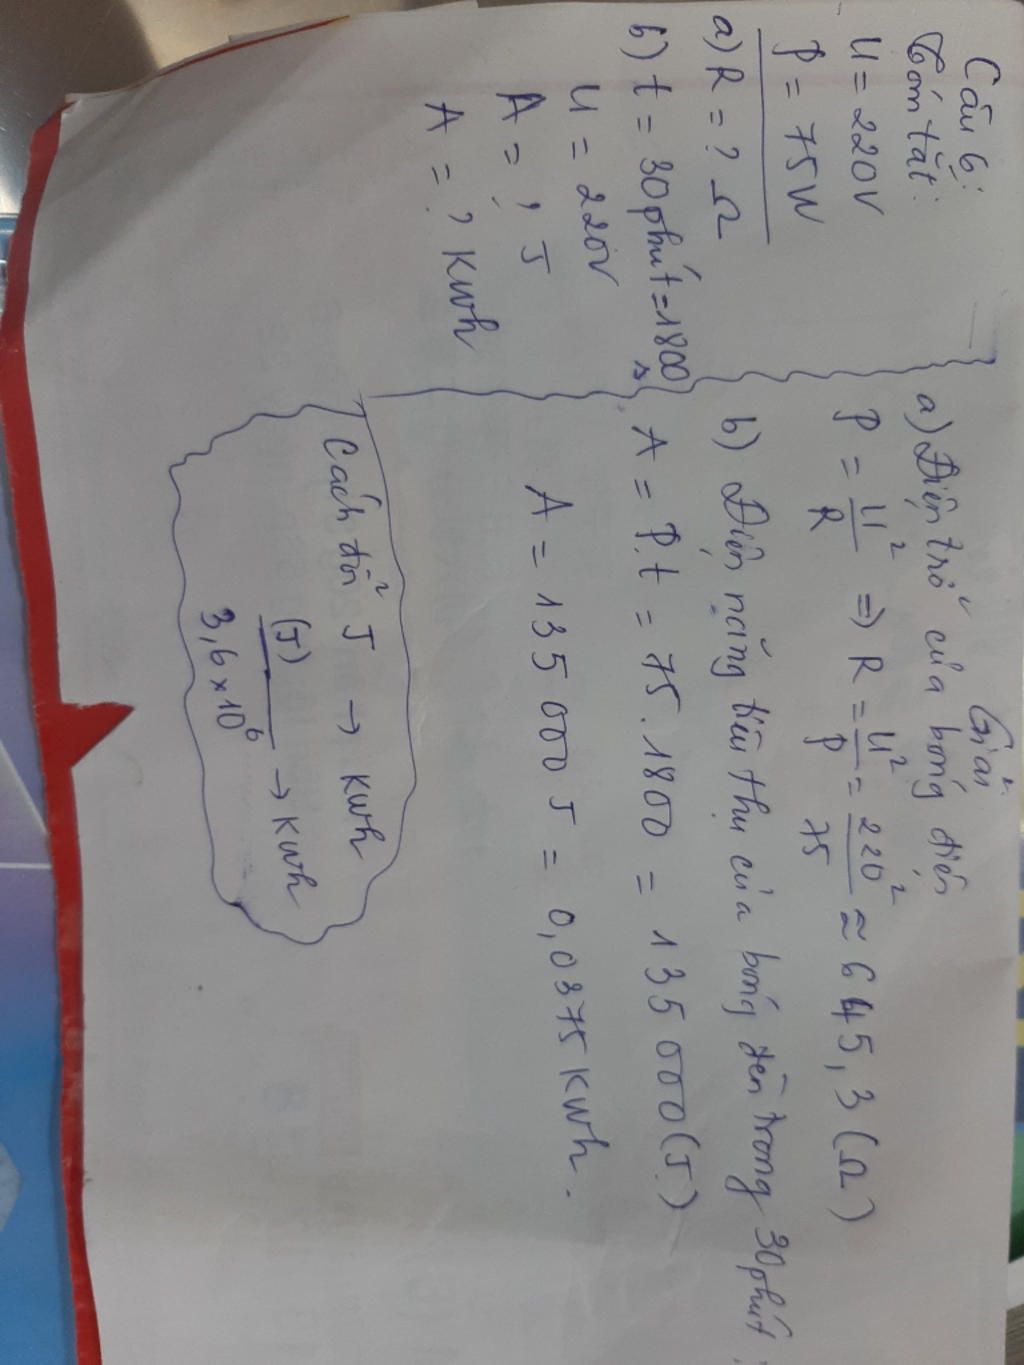 Câu 6:
Tóm tắt:
U = 220V
P = 75W
a) R = ? Ω
b) t = 30 phút = 1800
s
U = 220V
A = ? J
A = ? Kwh
Giải
a) Điện trở của bóng điện
P = U²/R => R = U²/P = 220²/75 ≈ 645,3 (Ω)
b) Điện năng tiêu thụ của bóng đèn trong 30 phút
A = P.t = 75.1800 = 135000 (J)
A = 135000 J = 0,0375 Kwh.
Cách đổi J → Kwh
(J)/3,6×10⁶ → Kwh